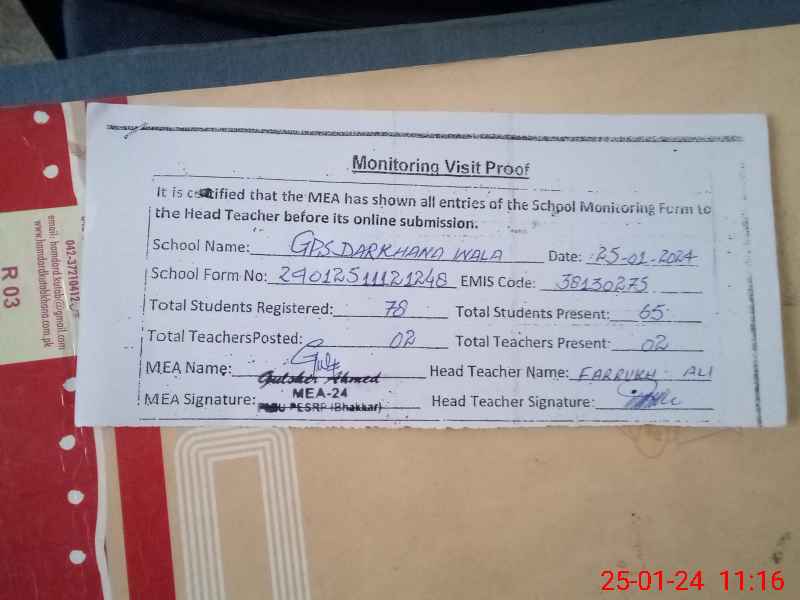 Monitoring Visit Proof
It is certified that the MEA has shown all entries of the School Monitoring Form to
the Head Teacher before its online submission.
School Name: GPS DARKHANA WALA Date: 25-01-2024
School Form No: 24012511121248 EMIS Code: 38130275
Total Students Registered: 78 Total Students Present: 65
Total TeachersPosted: 02 Total Teachers Present: 02
MEA Name: Gulsher Ahmed Head Teacher Name: FARRUKH ALI
MEA-24
MEA Signature: PMU PESRP (Bhakkar) Head Teacher Signature:
042-37210412
email: hamdard.kutab@gmail.com
www.hamdardkutabkhana.com.pk
R 03
25-01-24 11:16